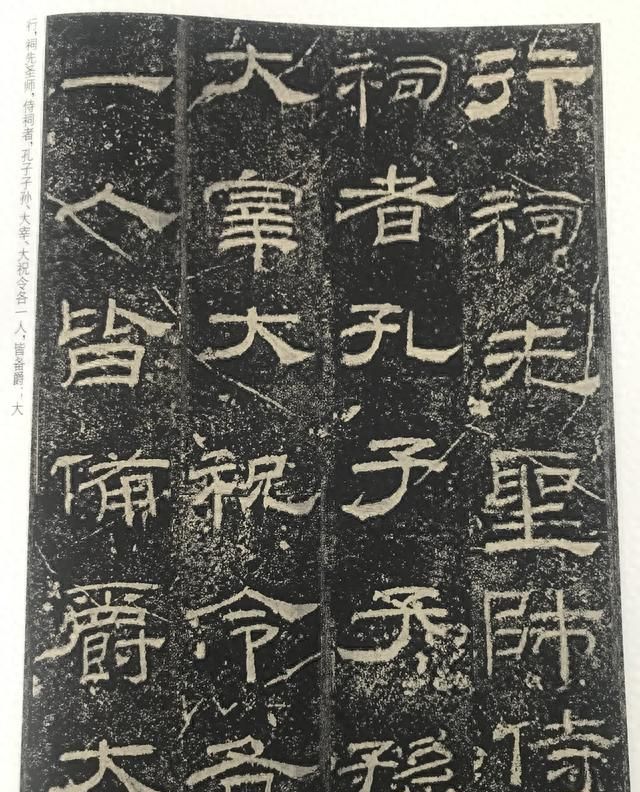 行祠先聖師侍
祠者孔子子孫
大宰大祝令各
一人皆備爵大
行，祠先圣师，侍祠者，孔子子孙、大宰、大祝令各一人，皆备爵。大